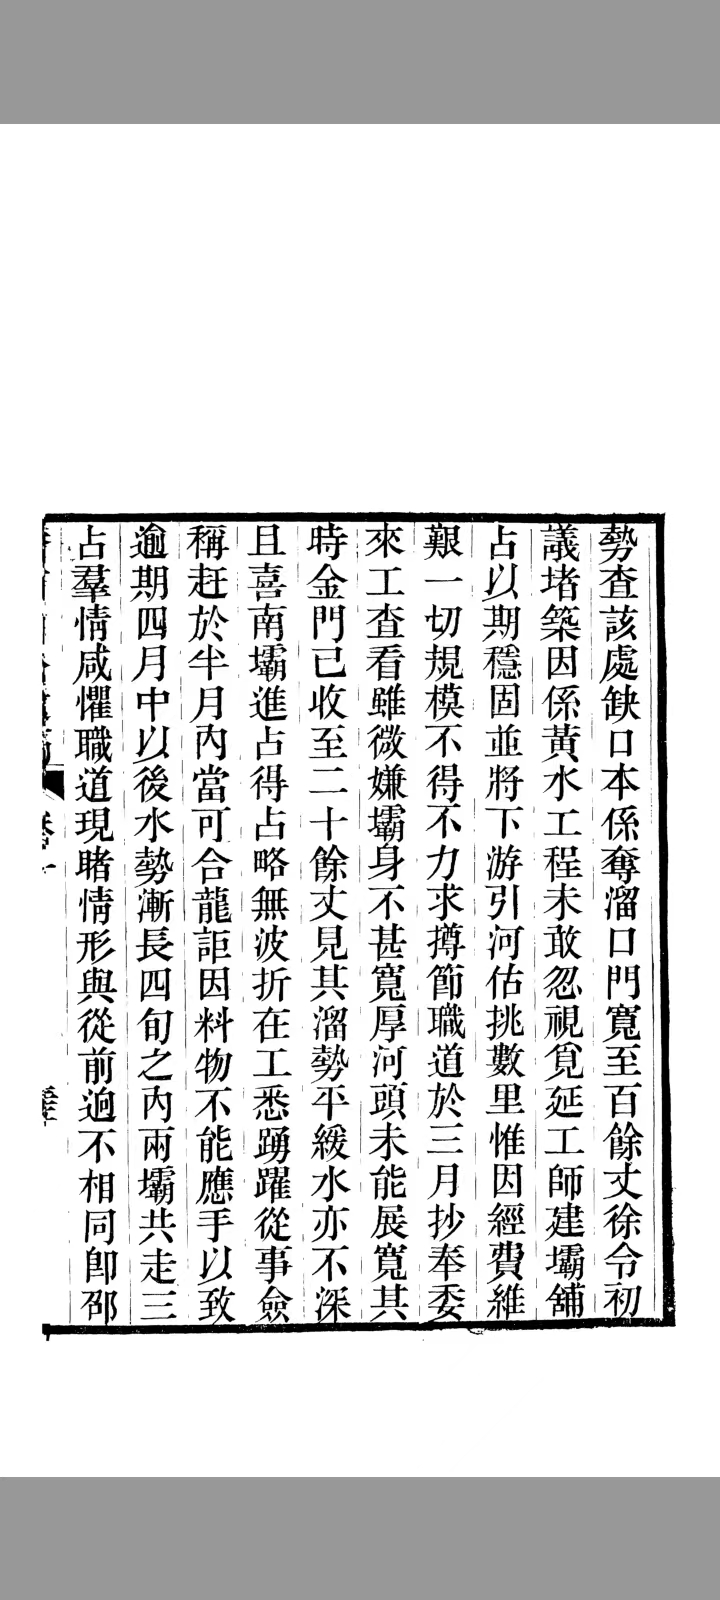 勢查該處缺口本係奪溜口門寬至百餘丈徐令初
議堵築因係黃水工程未敢忽視覓延工師建壩舖
占以期穩固並將下游引河估挑數里惟因經費維
艱一切規模不得不力求撙節職道於三月抄奉委
來工查看雖微嫌壩身不甚寬厚河頭未能展寬其
時金門已收至二十餘丈見其溜勢平緩水亦不深
且喜南壩進占得占略無波折在工悉踴躍從事僉
稱赶於半月內當可合龍詎因料物不能應手以致
逾期四月中以後水勢漸長四旬之內兩壩共走三
占羣情咸懼職道現睹情形與從前逈不相同卽邵